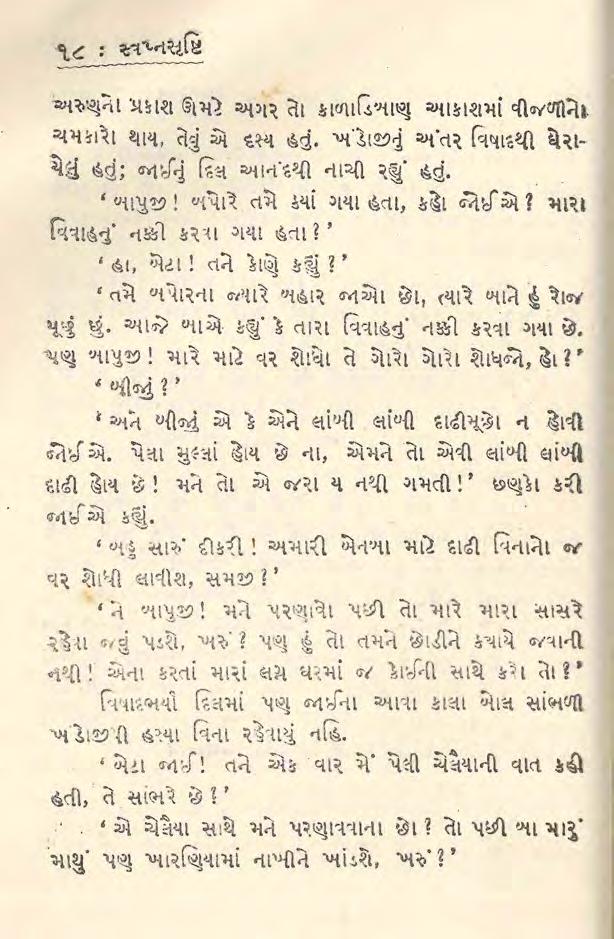 ૧૮ : સ્વપ્નસૃષ્ટિ
અરુણનો પ્રકાશ ઊમટે અગર તો કાળાડિબાણ આકાશમાં વીજળીનો
ચમકારો થાય, તેવું એ દૃશ્ય હતું. ખંડોજીનું અંતર વિષાદથી ઘેરા-
યેલું હતું; જાઈનું દિલ આનંદથી નાચી રહ્યું હતું.
‘બાપુજી! બપોરે તમે ક્યાં ગયા હતા, કહો જોઈએ? મારા
વિવાહનું નક્કી કરવા ગયા હતા?’
‘હા, બેટા! તને કોણે કહ્યું?’
‘તમે બપોરના જ્યારે બહાર જાઓ છો, ત્યારે બાને હું રોજ
પૂછું છું. આજે બાએ કહ્યું કે તારા વિવાહનું નક્કી કરવા ગયા છે.
પણ બાપુજી! મારે માટે વર શોધો તે ગોરો ગોરો શોધજો, હો?’
‘બીજું?’
‘અને બીજું એ કે એને લાંબી લાંબી દાઢીમૂછો ન હોવી
જોઈએ. પેલા મુલ્લાં હોય છે ના, એમને તો એવી લાંબી લાંબી
દાઢી હોય છે! મને તો એ જરા ય નથી ગમતી!’ છણકો કરી
જાઈએ કહ્યું.
‘બહુ સારું દીકરી! અમારી બેનબા માટે દાઢી વિનાનો જ
વર શોધી લાવીશ, સમજી?’
‘ને બાપુજી! મને પરણાવો પછી તો મારે મારા સાસરે
રહેવા જવું પડશે, ખરું? પણ હું તો તમને છોડીને કયાયે જવાની
નથી! એના કરતાં મારાં લગ્ન ઘરમાં જ કોઈની સાથે કરો તો?’
વિષાદભર્યા દિલમાં પણ જાઈના આવા કાલા બોલ સાંભળી
ખંડોજીથી હસ્યા વિના રહેવાયું નહિ.
‘બેટા જાઈ! તને એક વાર મેં પેલી ચેલૈયાની વાત કહી
હતી, તે સાંભરે છે?’
‘એ ચેલૈયા સાથે મને પરણાવવાના છો? તો પછી બા મારું
માથું પણ ખારણિયામાં નાખીને ખાંડશે, ખરું?’